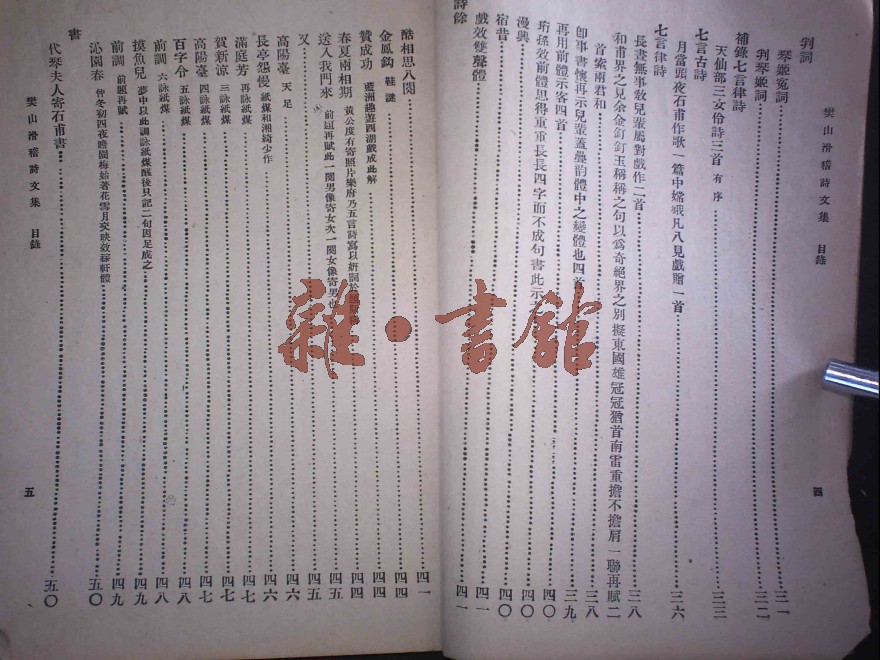 樊山滑稽詩文集　目錄
四
判詞
琴姬寃詞　三一
判琴姬詞　三二
補錄七言律詩
天仙部三女伶詩三首　有序　三三
七言古詩
月當頭夜石甫作歌一篇中嫦娥凡八見戲贈一首　三六
七言律詩
長晝無事敎兒輩屬對戲作二首　三八
和甫界之見余金釘釘玉稱稱之句以爲奇絕界之別擬東國雄冠冠猶首南雷重擔不擔肩一聯再賦二
首索兩君和　三八
卽事書懷再示兒輩蓋疊韵體中之變體也四首　三九
再用前體示客四首　四〇
珩孫效前體思得重重長長四字而不成句書此示　四〇
漫興　四〇
宿昔　四〇
戲效雙聲體　四一
詩餘
酷相思八闋　四一
金鳳鈎　鞋謎　四四
贊成功　藍洲趣遊西湖戲成此解　四四
春夏兩相期　黃公度有寄照片樂府乃五言詩寫以姸詞於　四四
送入我門來　前題再賦此一闋男像寄女次一闋女像寄男也　四五
又　四五
高陽臺　天足　四六
長亭怨慢　紙煤和湘綺少作　四六
滿庭芳　再詠紙煤　四七
賀新涼　三詠紙煤　四七
高陽臺　四詠紙煤　四七
百字令　五詠紙煤　四八
前調　六詠紙煤　四八
摸魚兒　夢中以此調詠紙煤醒後只記二句因足成之　四九
前調　前題再賦　四九
沁園春　曾冬初四夜瞻園梅始著花雪月交映效稼軒體　五〇
書
代琴夫人寄石甫書　五〇
樊山滑稽詩文集　目錄
五
雜·書館